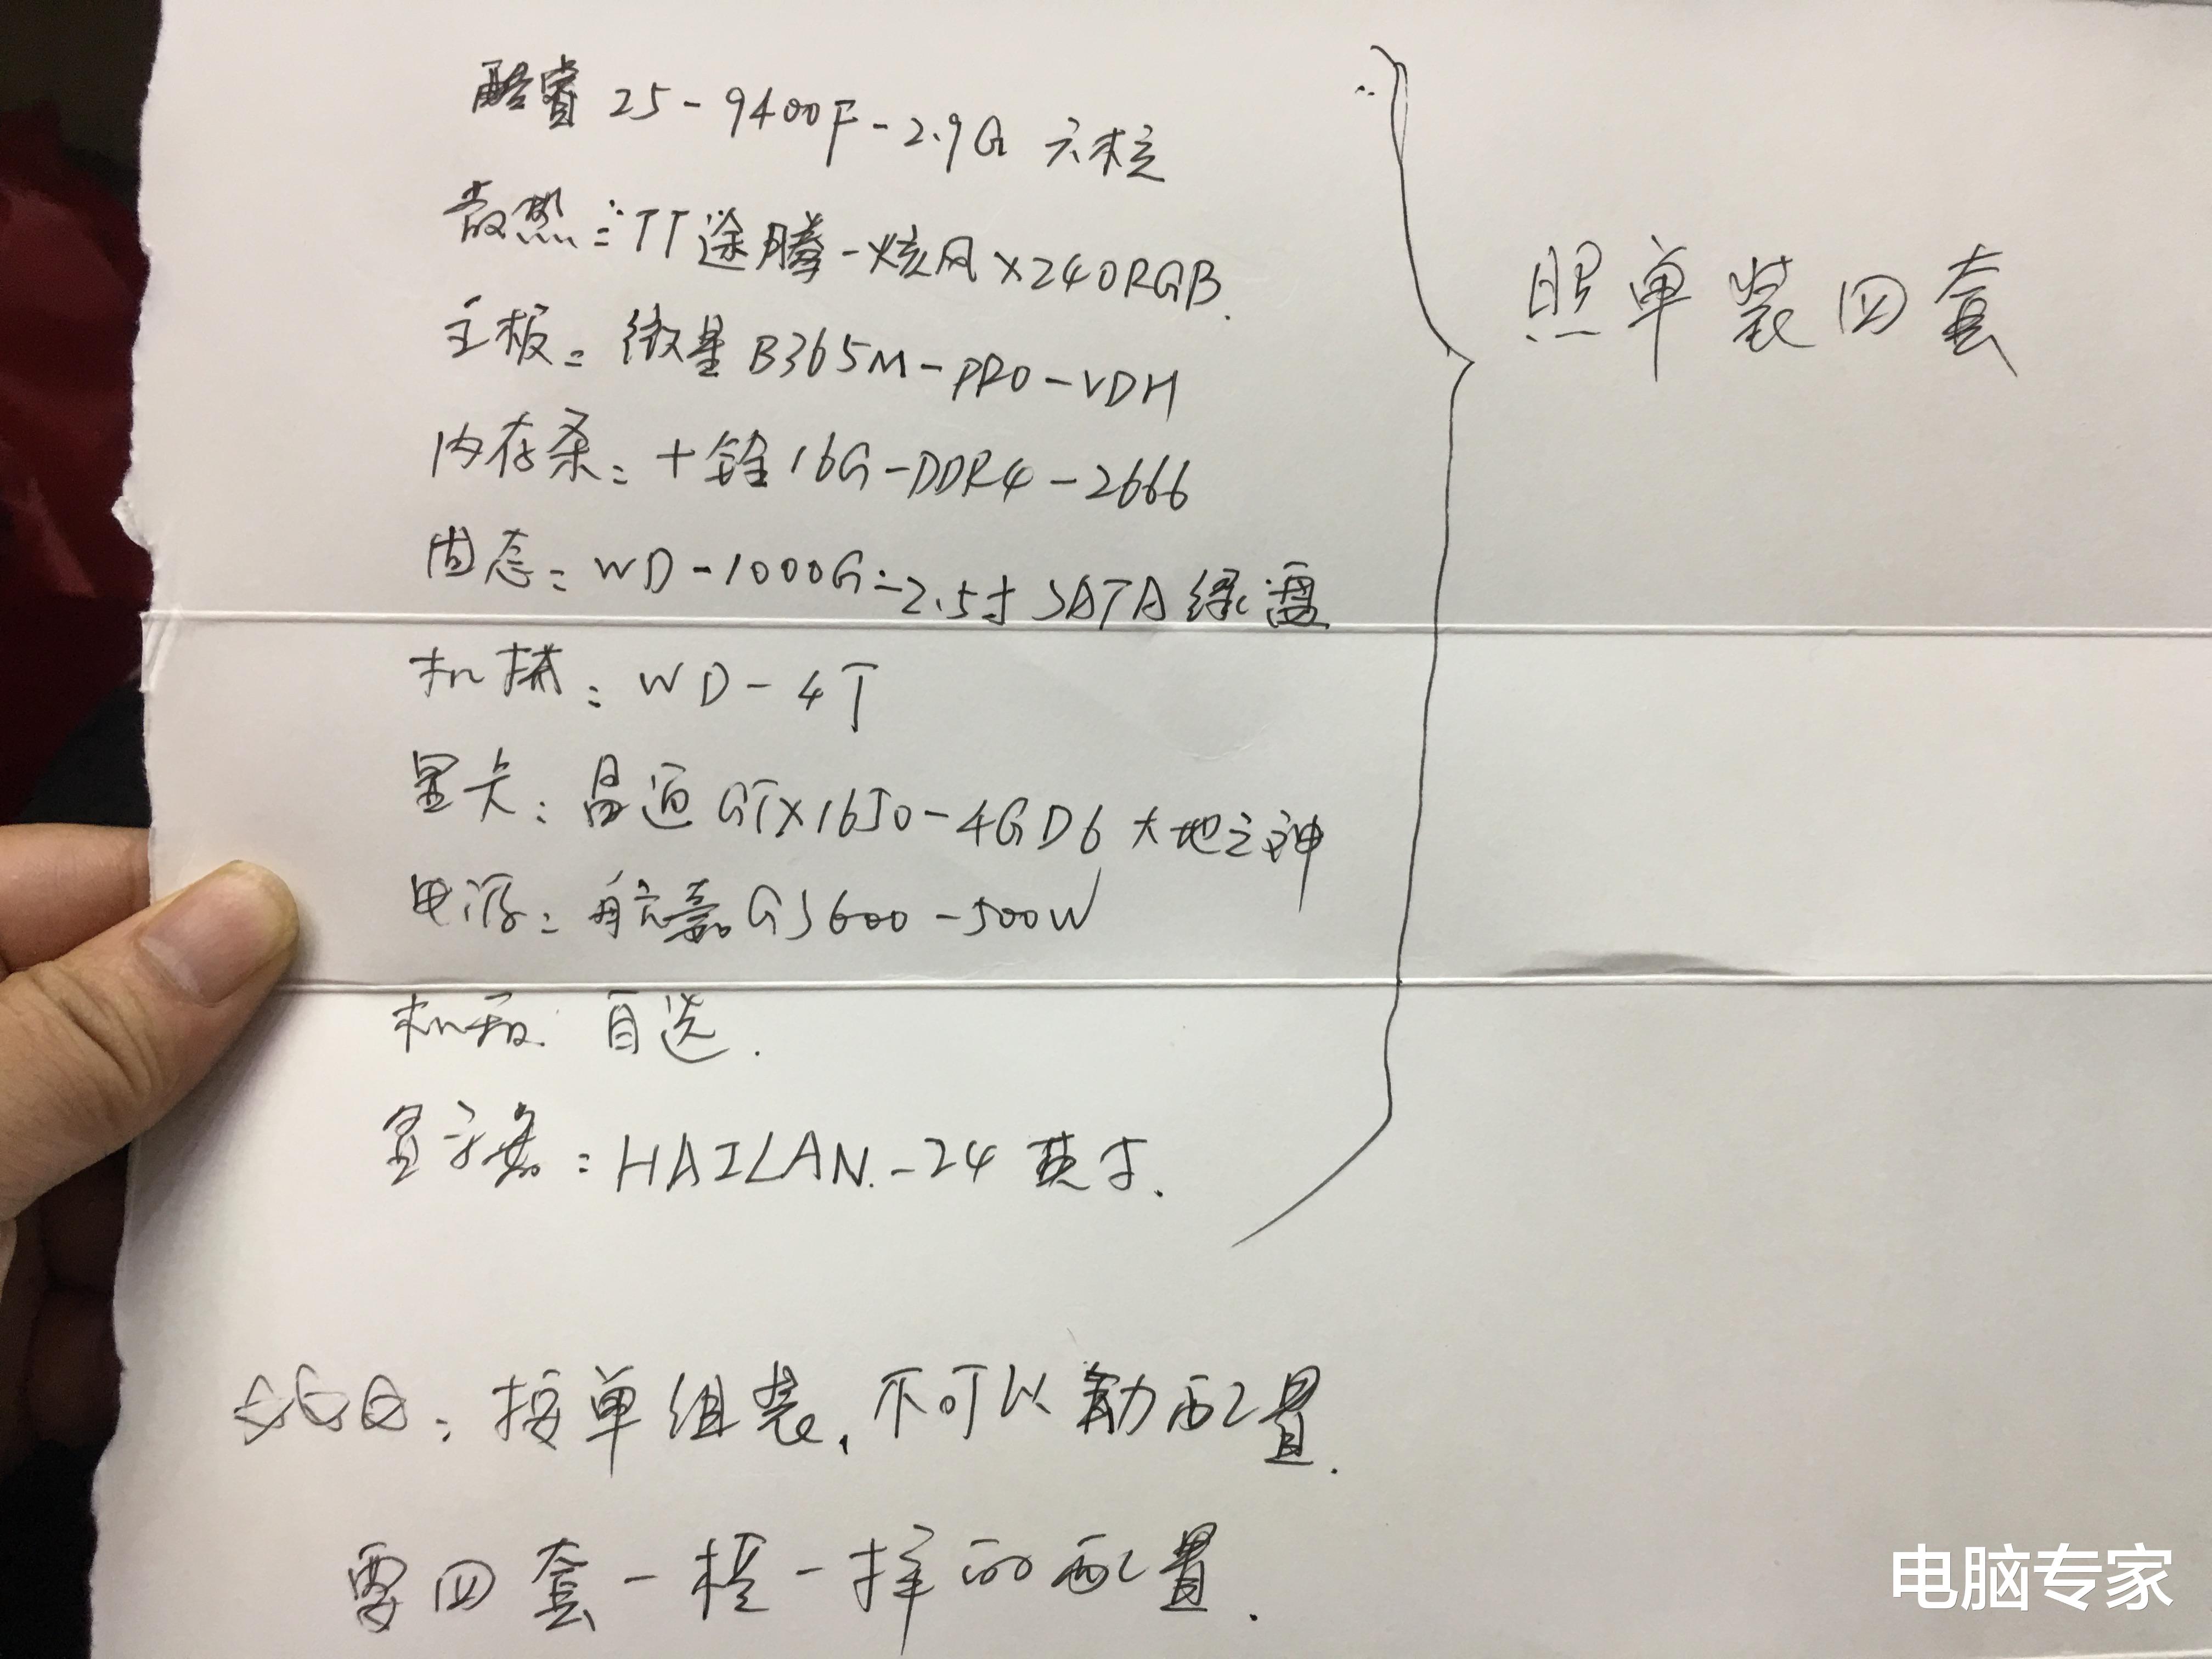 酷睿 25-9400F-2.9G 六核
散热:TT途腾-炫风X240RGB.
主板:微星B365M-PRO-VDH
内存条:十铨16G-DDR4-2666
固态:WD-1000G-2.5寸SATA绿盘
机械:WD-4T
显卡:昌迈GTX1650-4GD6大地之神
电源:航嘉GS600-500W
机箱: 自选.
显示器:HAILAN.-24英寸.
照单装四套
:按单组装,不可以动配置.
要四套一模一样的配置.
电脑专家